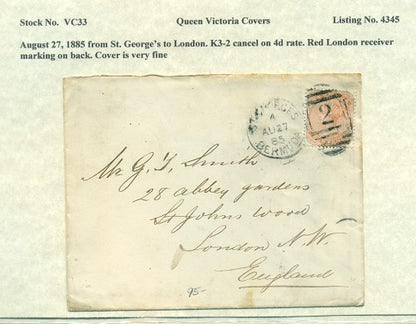 Stock No. VC33 Queen Victoria Covers Listing No. 4345
August 27, 1885 from St. George's to London. K3-2 cancel on 4d rate. Red London receiver
marking on back. Cover is very fine
ST GEORGES
A
AU 27
85
BERMUDA
2
Mr G. T. Smith
28 abbey gardens
St Johns Wood
London N.W.
England
95-